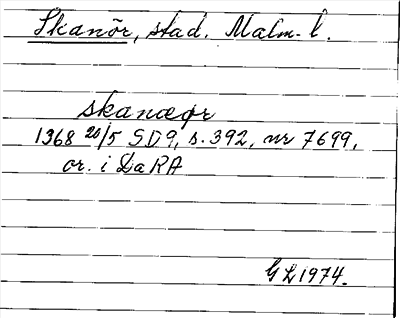 Skanör, stad. Malm. l.
skanæør
1368 20/5 SD9, s. 392, nr 7699,
or. i DaRA
GL1974.